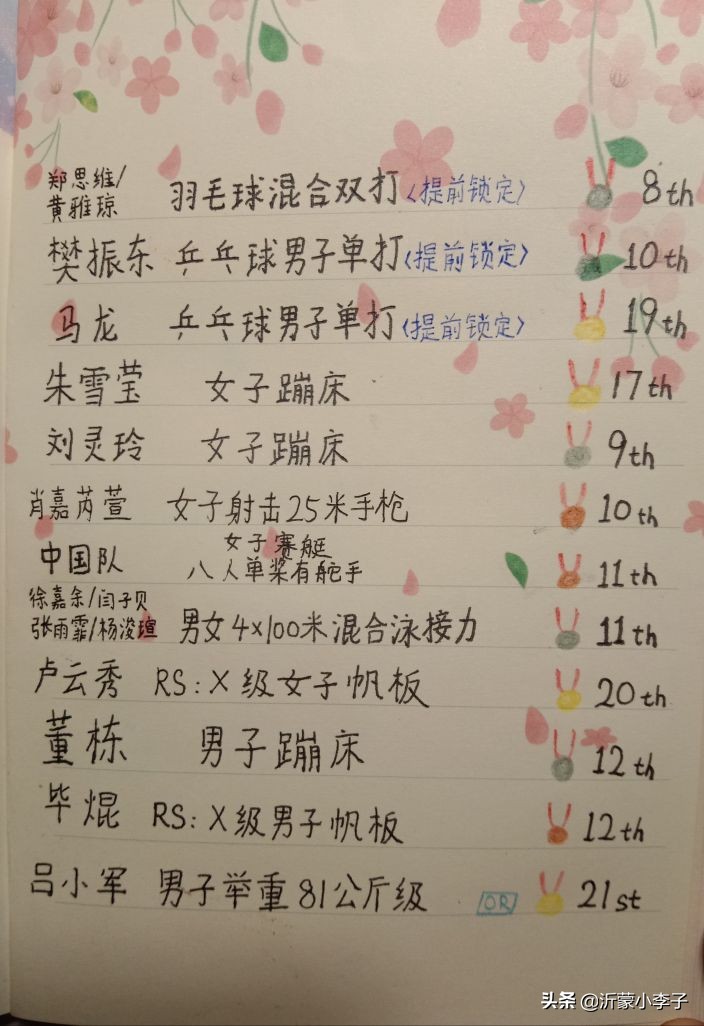 郑思维/
黄雅琼 羽毛球混合双打〈提前锁定〉 8th
樊振东 乒乓球男子单打〈提前锁定〉 10th
马龙 乒乓球男子单打〈提前锁定〉 19th
朱雪莹 女子蹦床 17th
刘灵玲 女子蹦床 9th
肖嘉芮萱 女子射击25米手枪 10th
女子赛艇
中国队 八人单桨有舵手 11th
徐嘉余/闫子贝
张雨霏/杨浚瑄 男女4×100米混合泳接力 11th
卢云秀 RS:X级女子帆板 20th
董栋 男子蹦床 12th
毕焜 RS:X级男子帆板 12th
吕小军 男子举重81公斤级 OR 21st
头条 @沂蒙小李子